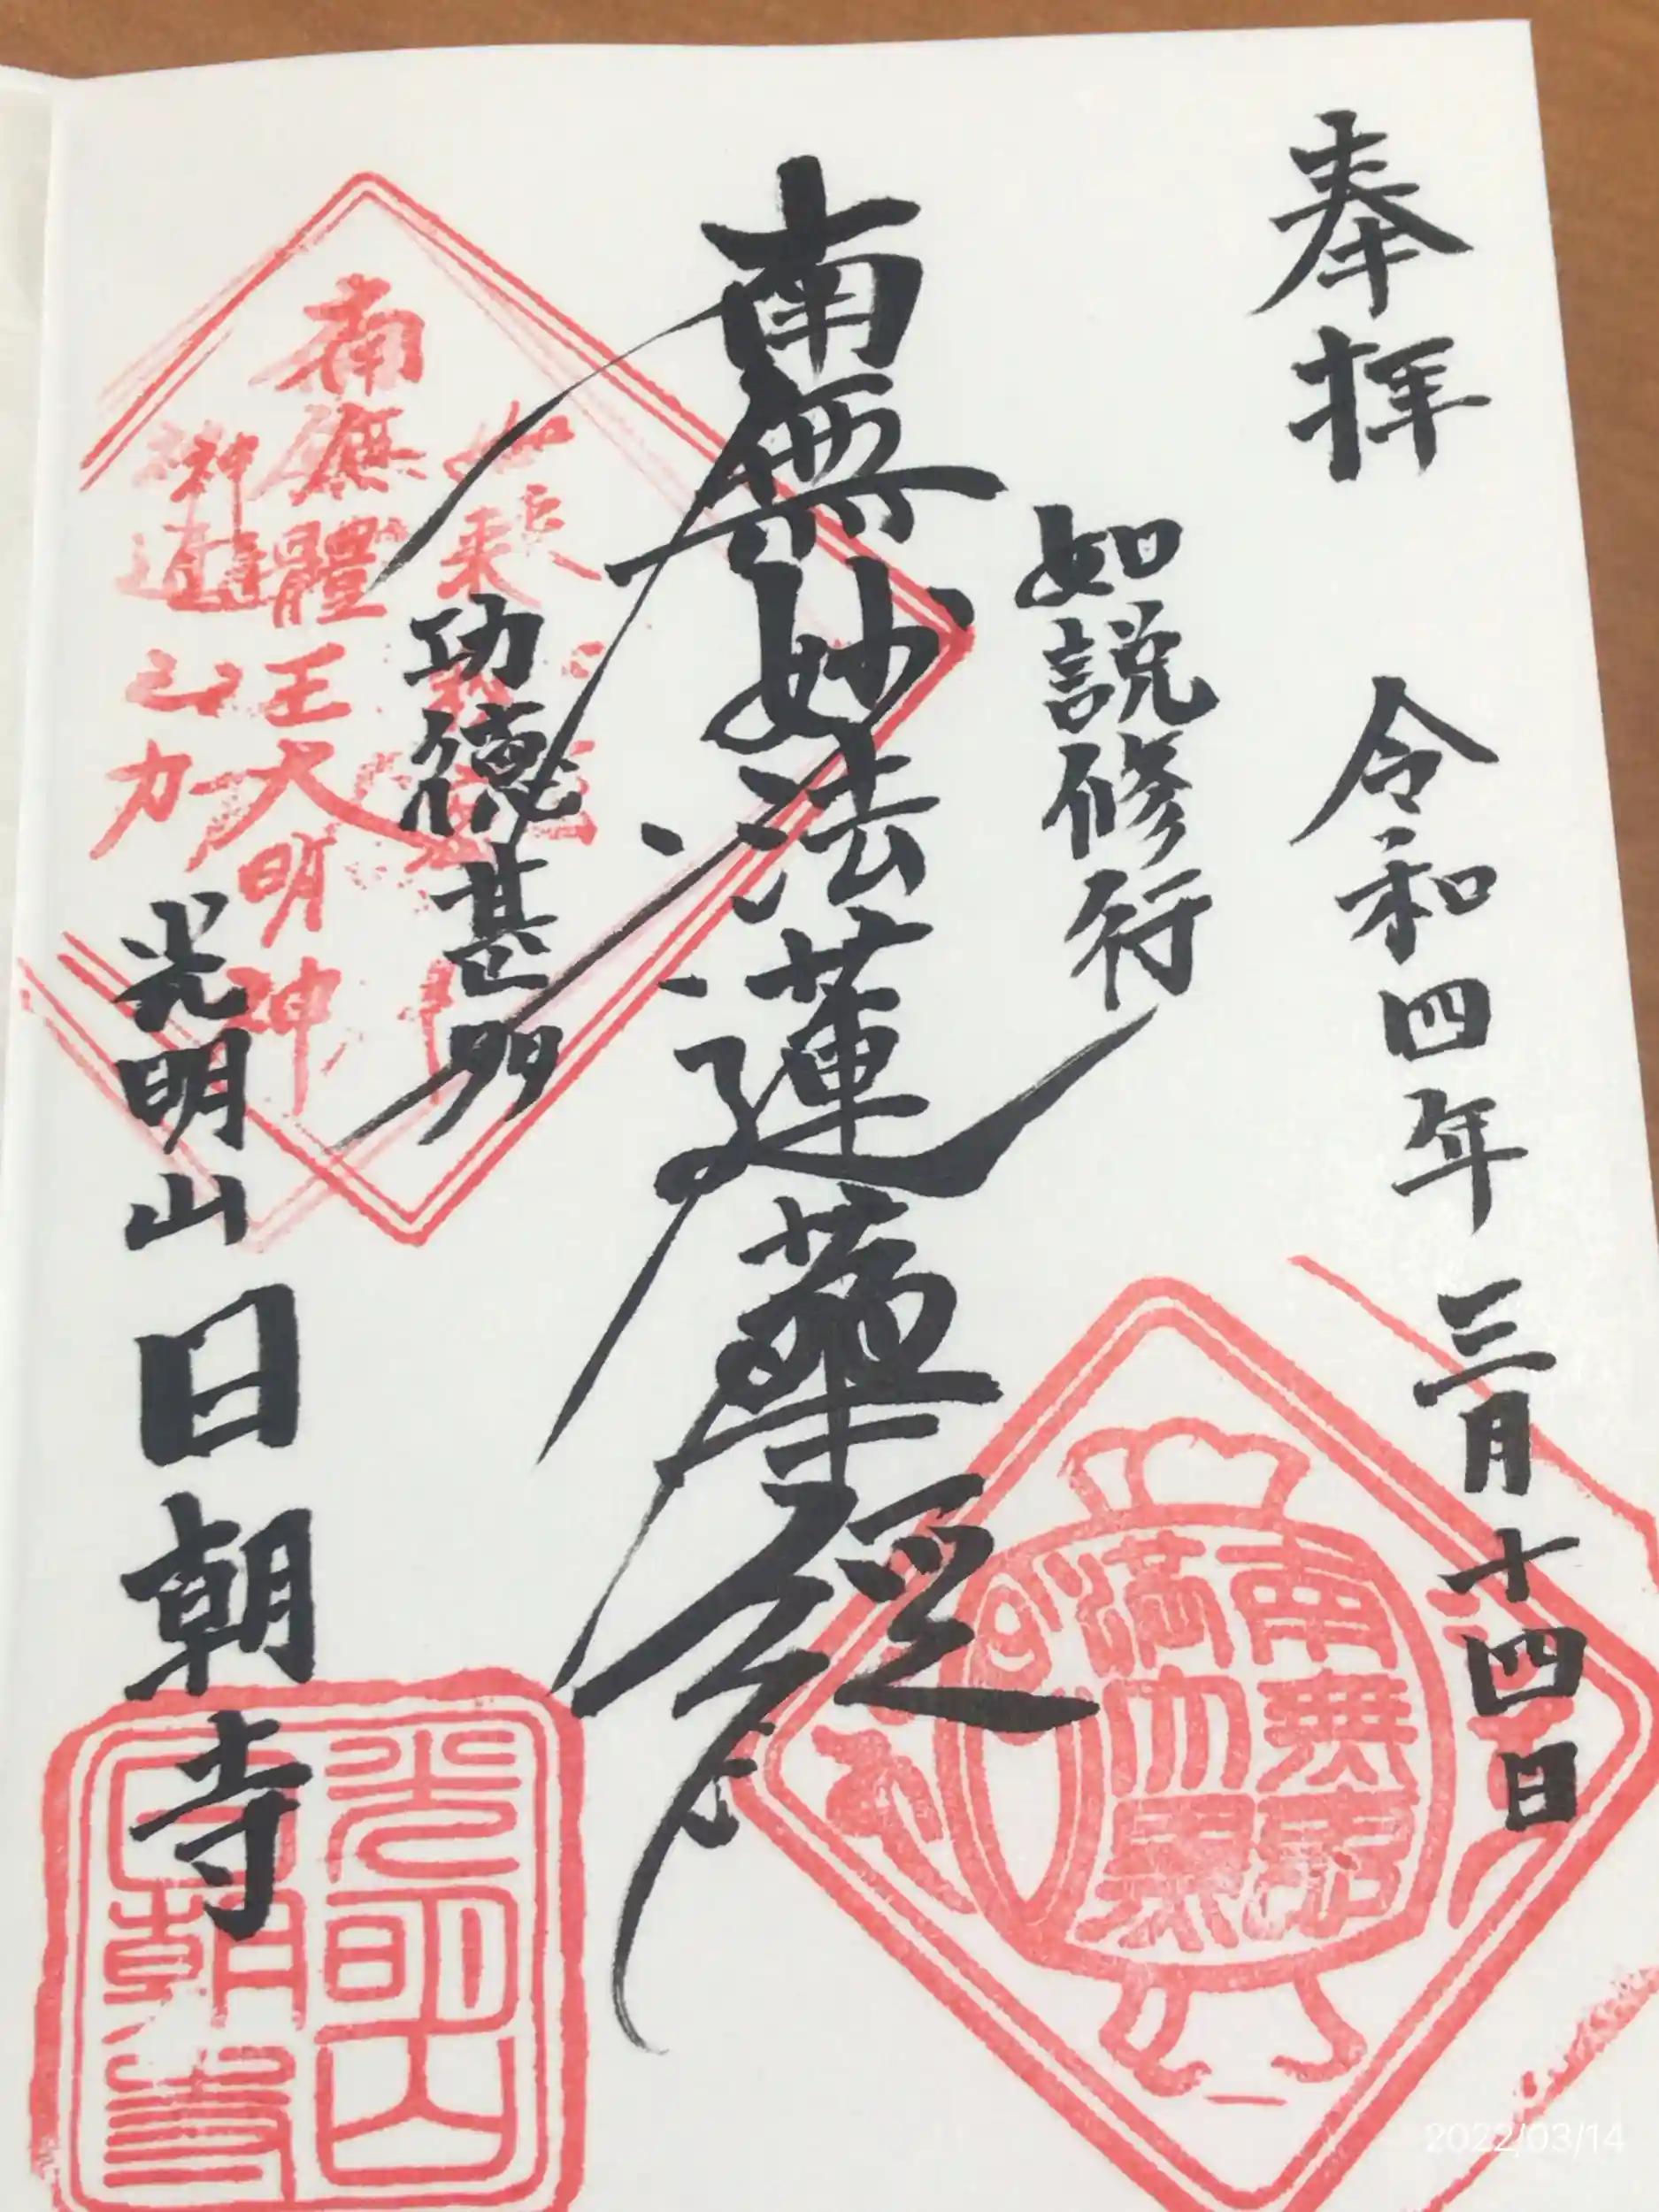 奉拝
令和四年 三月十四日
如説修行
南無妙法蓮華経
功德甚多
光明山 日朝寺
如来
南無體王大明神
神通之力
光明山
日朝寺
2022/03/14